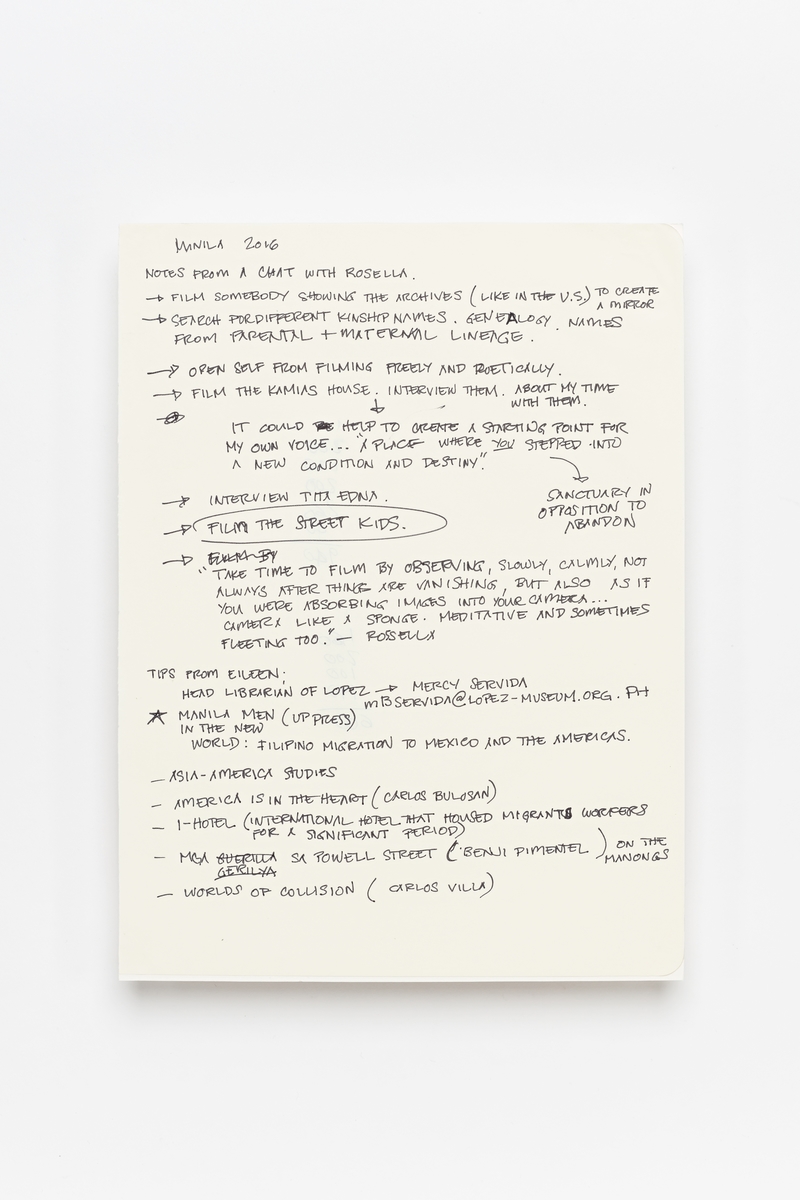 MANILA 2016
NOTES FROM A CHAT WITH ROSELLA.
→ FILM SOMEBODY SHOWING THE ARCHIVES (LIKE IN THE U.S.) TO CREATE
A MIRROR
→ SEARCH FOR DIFFERENT KINSHIP NAMES. GENEALOGY. NAMES
FROM PARENTAL + MATERNAL LINEAGE.
→ OPEN SELF FROM FILMING FREELY AND POETICALLY.
→ FILM THE KAMIAS HOUSE. INTERVIEW THEM. ABOUT MY TIME
WITH THEM.
IT COULD HELP TO CREATE A STARTING POINT FOR
MY OWN VOICE... "A PLACE WHERE YOU STEPPED INTO
A NEW CONDITION AND DESTINY."
SANCTUARY IN
OPPOSITION TO
ABANDON
→ INTERVIEW TITA EDNA.
→ FILM THE STREET KIDS.
→
"TAKE TIME TO FILM BY OBSERVING, SLOWLY, CALMLY, NOT
ALWAYS AFTER THINGS ARE VANISHING, BUT ALSO AS IF
YOU WERE ABSORBING IMAGES INTO YOUR CAMERA...
CAMERA LIKE A SPONGE. MEDITATIVE AND SOMETIMES
FLEETING TOO." — ROSSELLA
TIPS FROM EILEEN;
HEAD LIBRARIAN OF LOPEZ → MERCY SERVIDA
MBSERVIDA@LOPEZ-MUSEUM.ORG.PH
★ MANILA MEN (UP PRESS)
IN THE NEW
WORLD: FILIPINO MIGRATION TO MEXICO AND THE AMERICAS.
— ASIA-AMERICA STUDIES
— AMERICA IS IN THE HEART (CARLOS BULOSAN)
— I-HOTEL (INTERNATIONAL HOTEL THAT HOUSED MIGRANT WORKERS
FOR A SIGNIFICANT PERIOD)
— MGA GUERILLA SA POWELL STREET (BENJI PIMENTEL) ON THE
MANONGS
GERILYA
— WORLDS OF COLLISION (CARLOS VILLA)